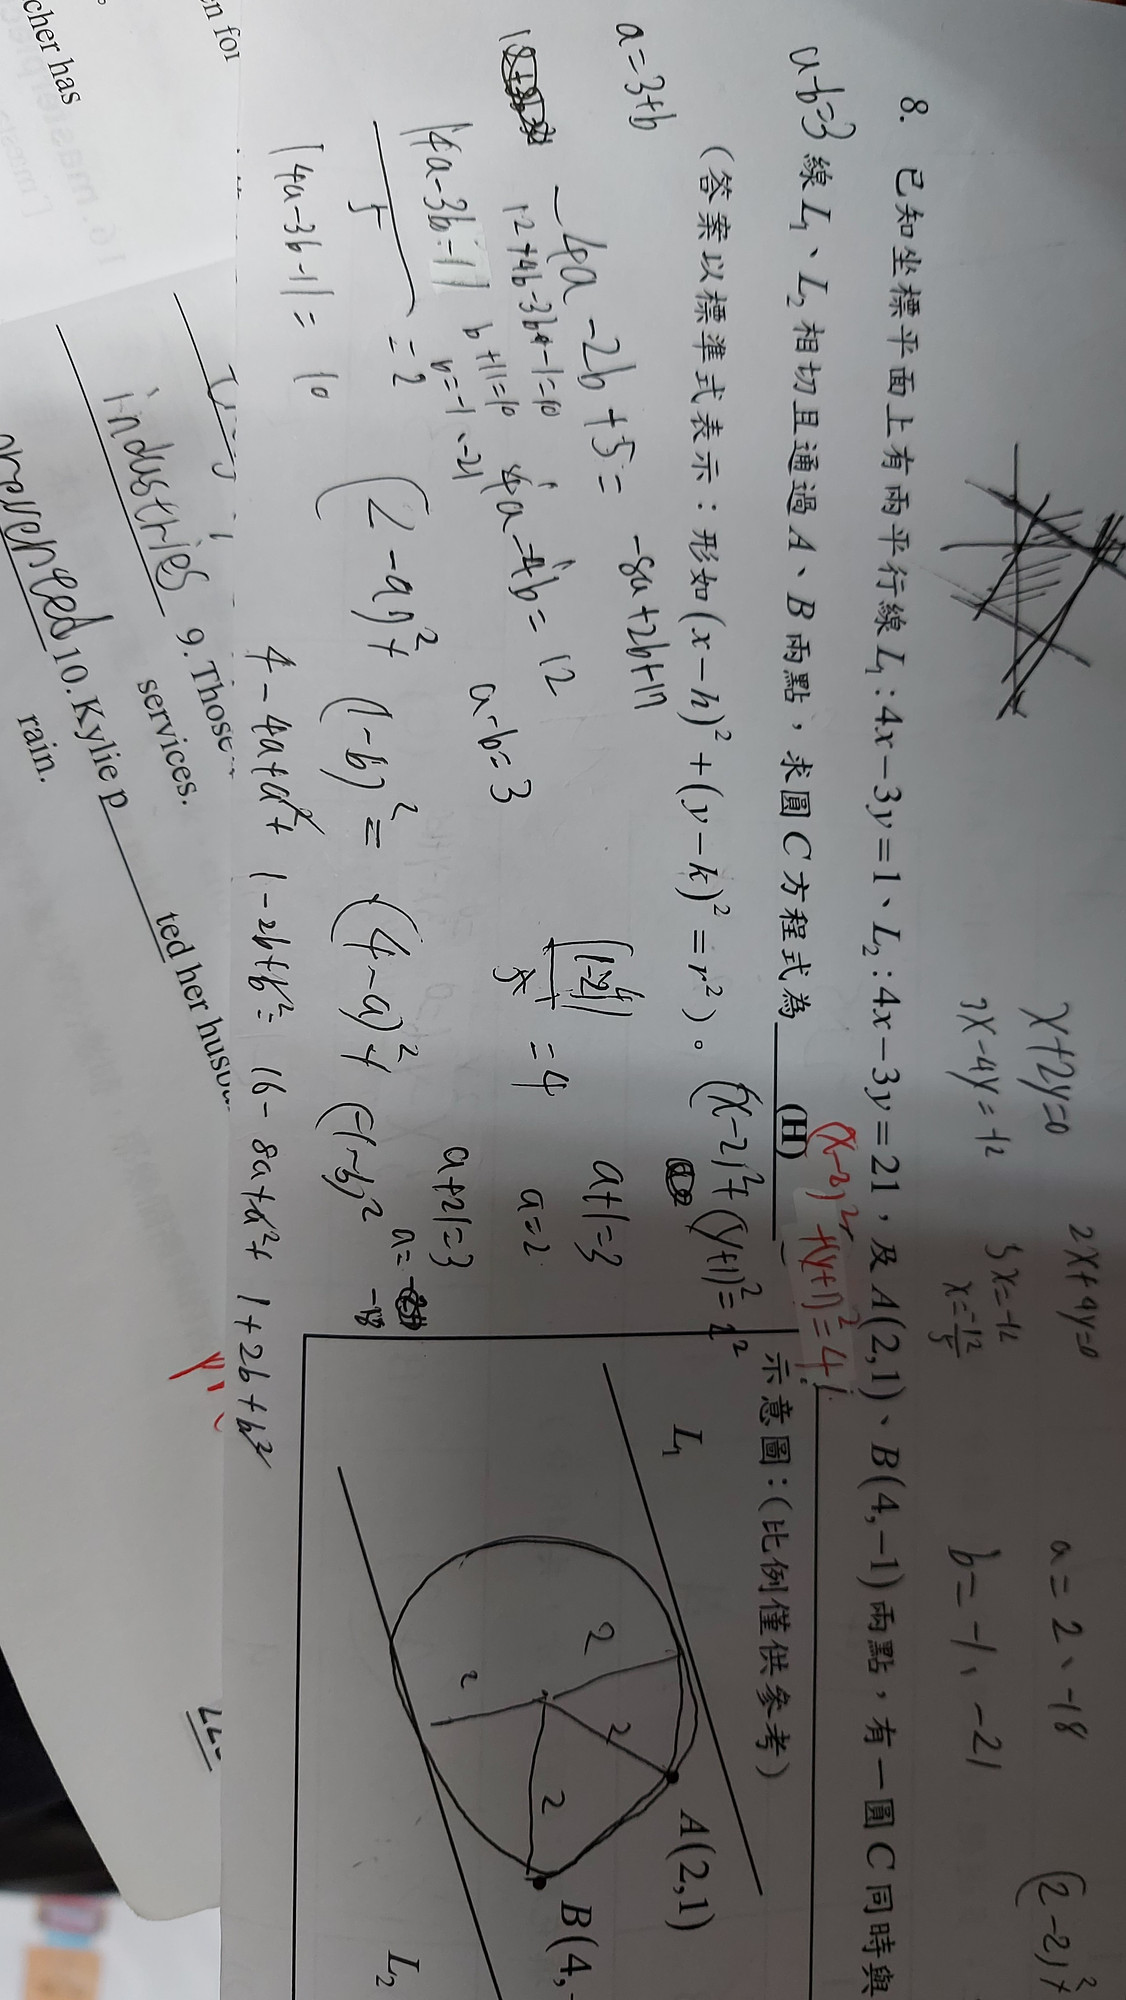 x+2y=0
2x+4y=0
a=2、-18
3x-4y=-12
5x=-12
x=-12/5
b=-1、-21
8. 已知坐標平面上有兩平行線 L₁:4x−3y=1、L₂:4x−3y=21，及 A(2,1)、B(4,−1)兩點，有一圓C同時與
a-b=3
線 L₁、L₂ 相切且通過 A、B 兩點，求圓C方程式為 (H)
(x-2)²+(y+1)²=4
(答案以標準式表示：形如(x−h)²+(y−k)²=r²)。
(x-2)²+(y+1)²=2²
a=3+b
-4a-2b+5=
-8a+2b+17
a+1=3
12+4b-3b-1=10
4a-4b=12
|1-21|/5=4
a=2
|4a-3b-1|/5=2
b+11=10
b=-1、-21
a-b=3
a+21=3
a=-18
|4a-3b-1|=10
(2-a)²+(1-b)²=(4-a)²+(-1-b)²
4-4a+a²+1-2b+b²=16-8a+a²+1+2b+b²
示意圖：(比例僅供參考)
L₁
A(2,1)
2
2
2
2
B(4,
L₂
en for
cher has
industries
9. Those
services.
prevented
10. Kylie p
ted her husb
rain.